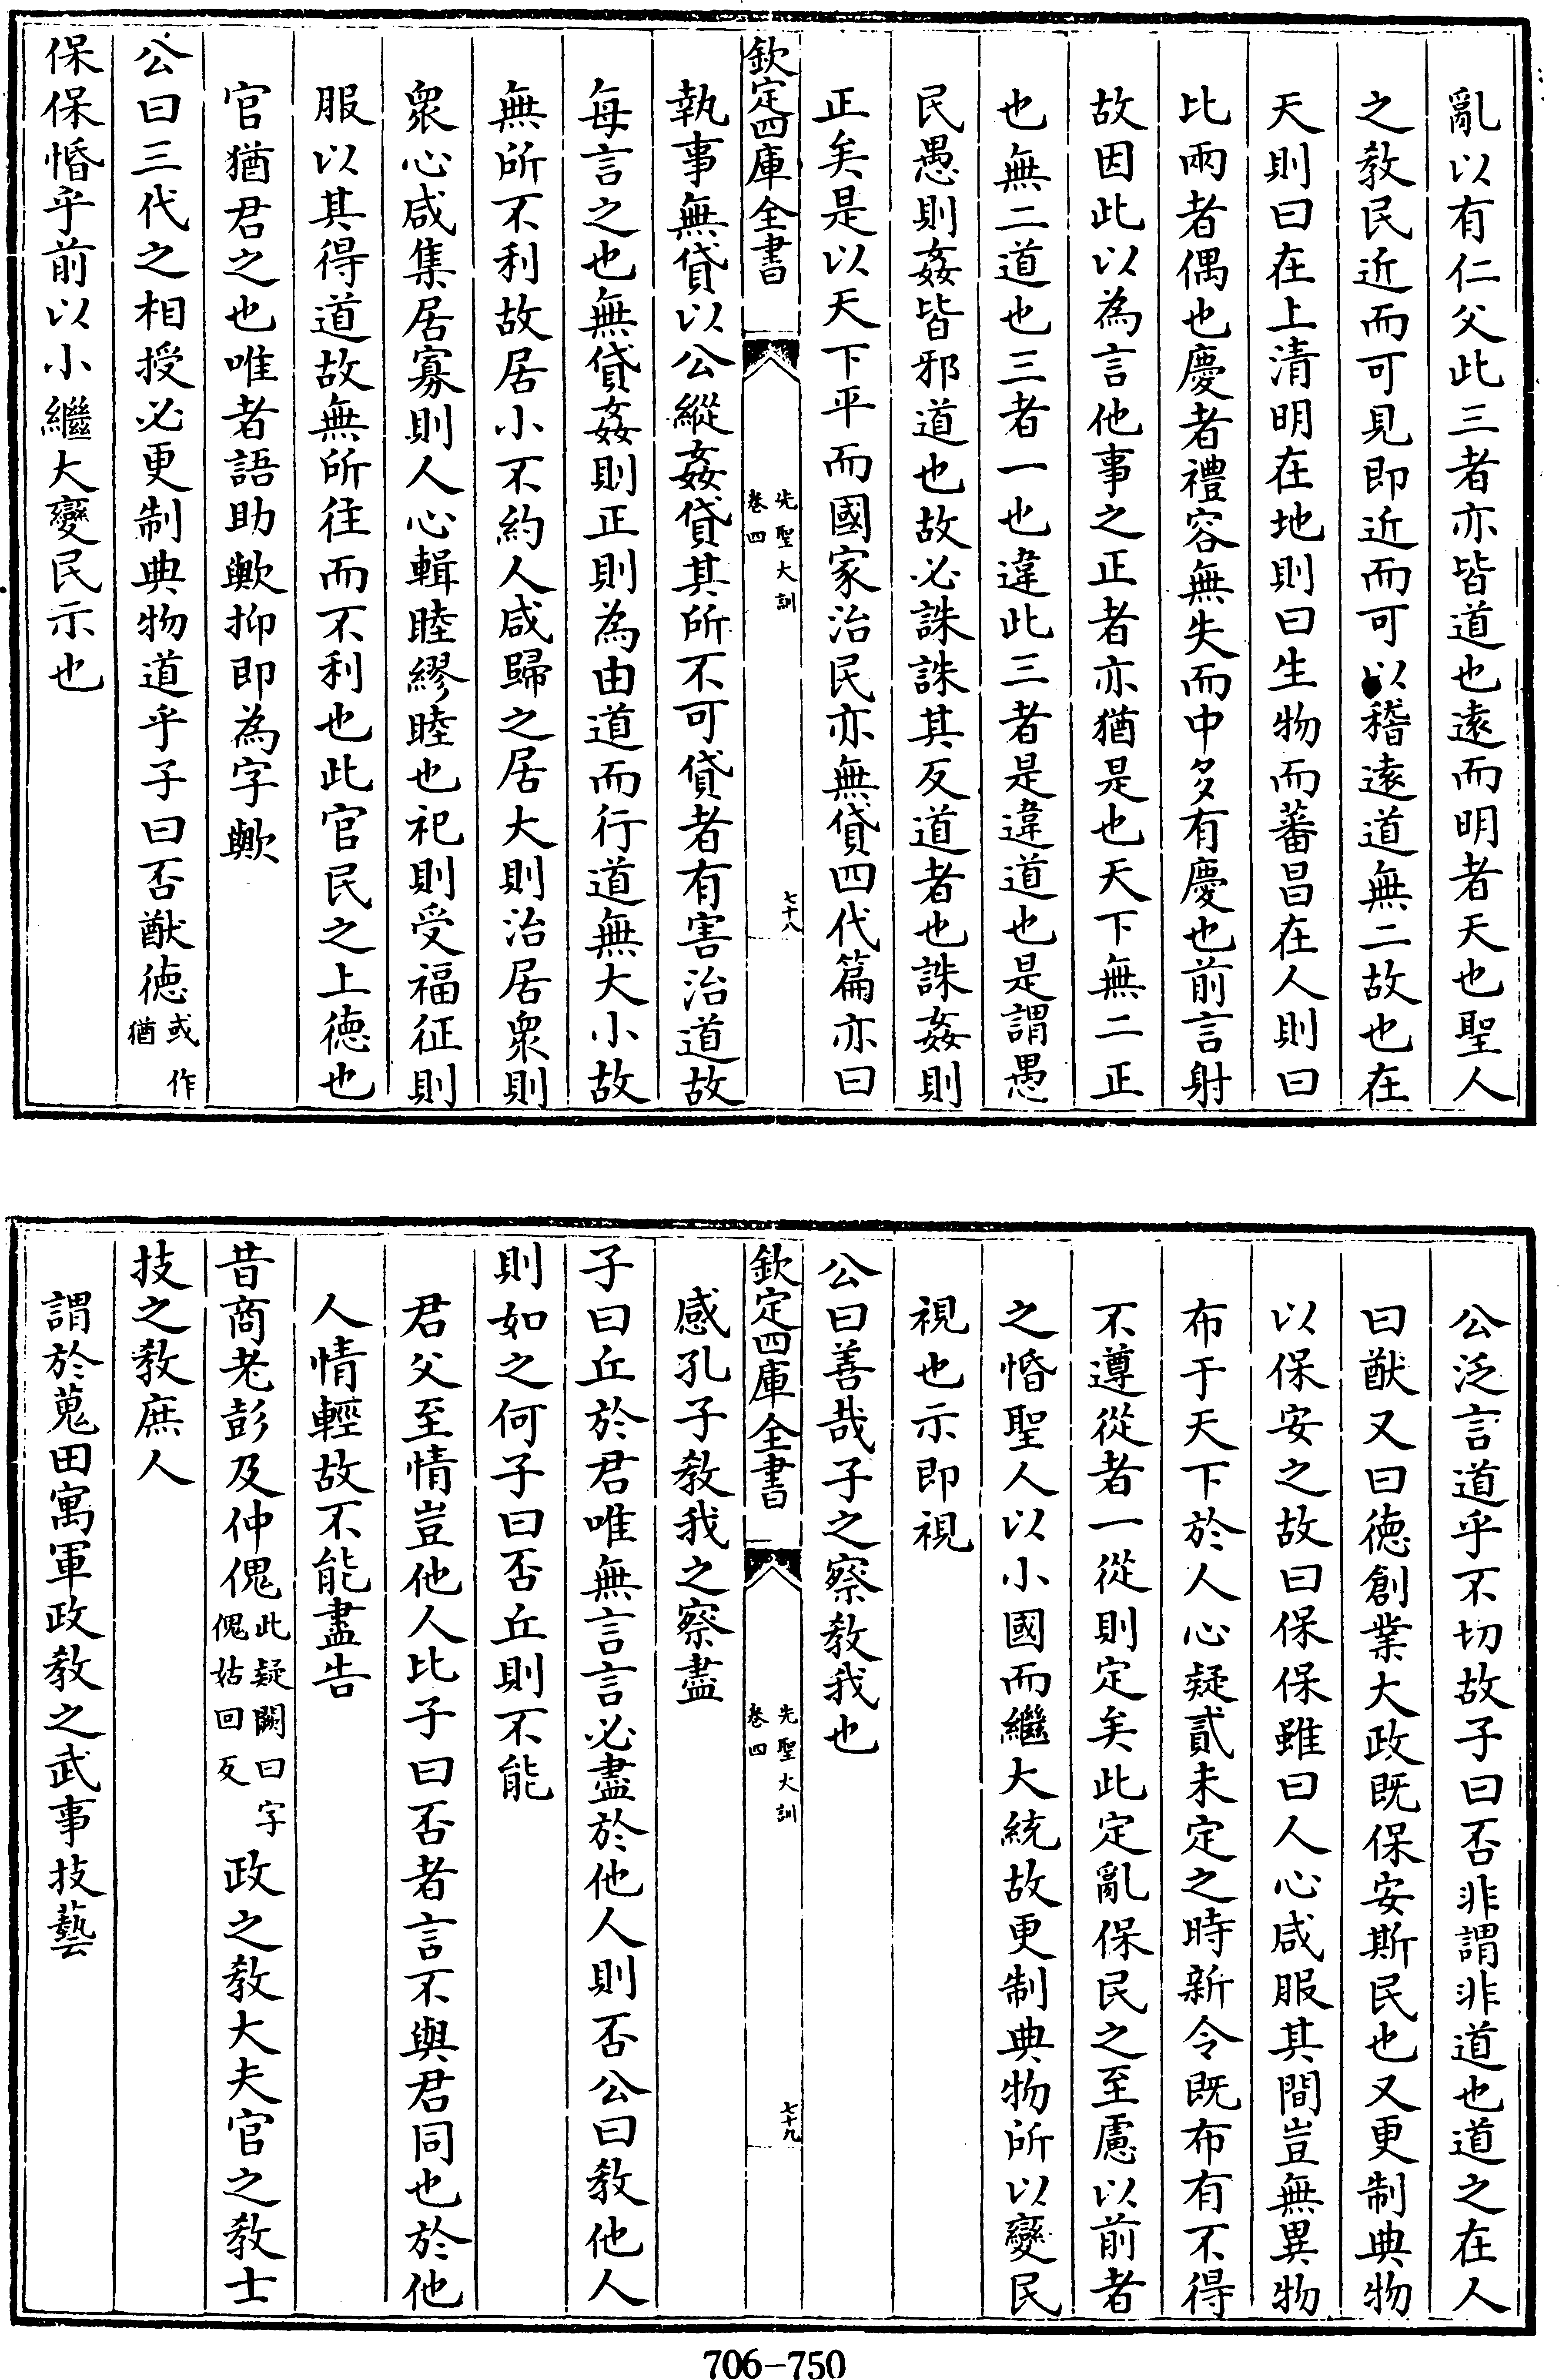 亂以有仁父此三者亦皆道也遠而明者天也聖人
之教民近而可見即近而可以稽遠道無二故也在
天則曰在上清明在地則曰生物而蕃昌在人則曰
比兩者偶也慶者禮容無失而中多有慶也前言射
故因此以為言他事之正者亦猶是也天下無二正
也無二道也三者一也違此三者是違道也是謂愚
民愚則姦皆邪道也故必誅誅其反道者也誅姦則
正矣是以天下平而國家治民亦無貸四代篇亦曰
欽定四庫全書
先聖大訓
卷四
七十八
執事無貸以公縱姦貸其所不可貸者有害治道故
每言之也無貸姦則正則為由道而行道無大小故
無所不利故居小不約人咸歸之居大則治居衆則
衆心咸集居寡則人心輯睦繆睦也祀則受福征則
服以其得道故無所往而不利也此官民之上德也
官猶君之也唯者語助歟抑即為字歟
公曰三代之相授必更制典物道乎子曰否猷德或作猶
保保惛乎前以小繼大變民示也
公泛言道乎不切故子曰否非謂非道也道之在人
曰猷又曰德創業大政既保安斯民也又更制典物
以保安之故曰保保雖曰人心咸服其間豈無異物
布于天下於人心疑貳未定之時新令既布有不得
不遵從者一從則定矣此定亂保民之至慮以前者
之惛聖人以小國而繼大統故更制典物所以變民
視也示即視
公曰善哉子之察教我也
欽定四庫全書
先聖大訓
卷四
七十九
感孔子教我之察盡
子曰丘於君唯無言言必盡於他人則否公曰教他人
則如之何子曰否丘則不能
君父至情豈他人比子曰否者言不與君同也於他
人情輕故不能盡告
昔商老彭及仲傀此疑闕曰字傀姑回反政之教大夫官之教士
技之教庶人
謂於蒐田寓軍政教之武事技藝
706-750